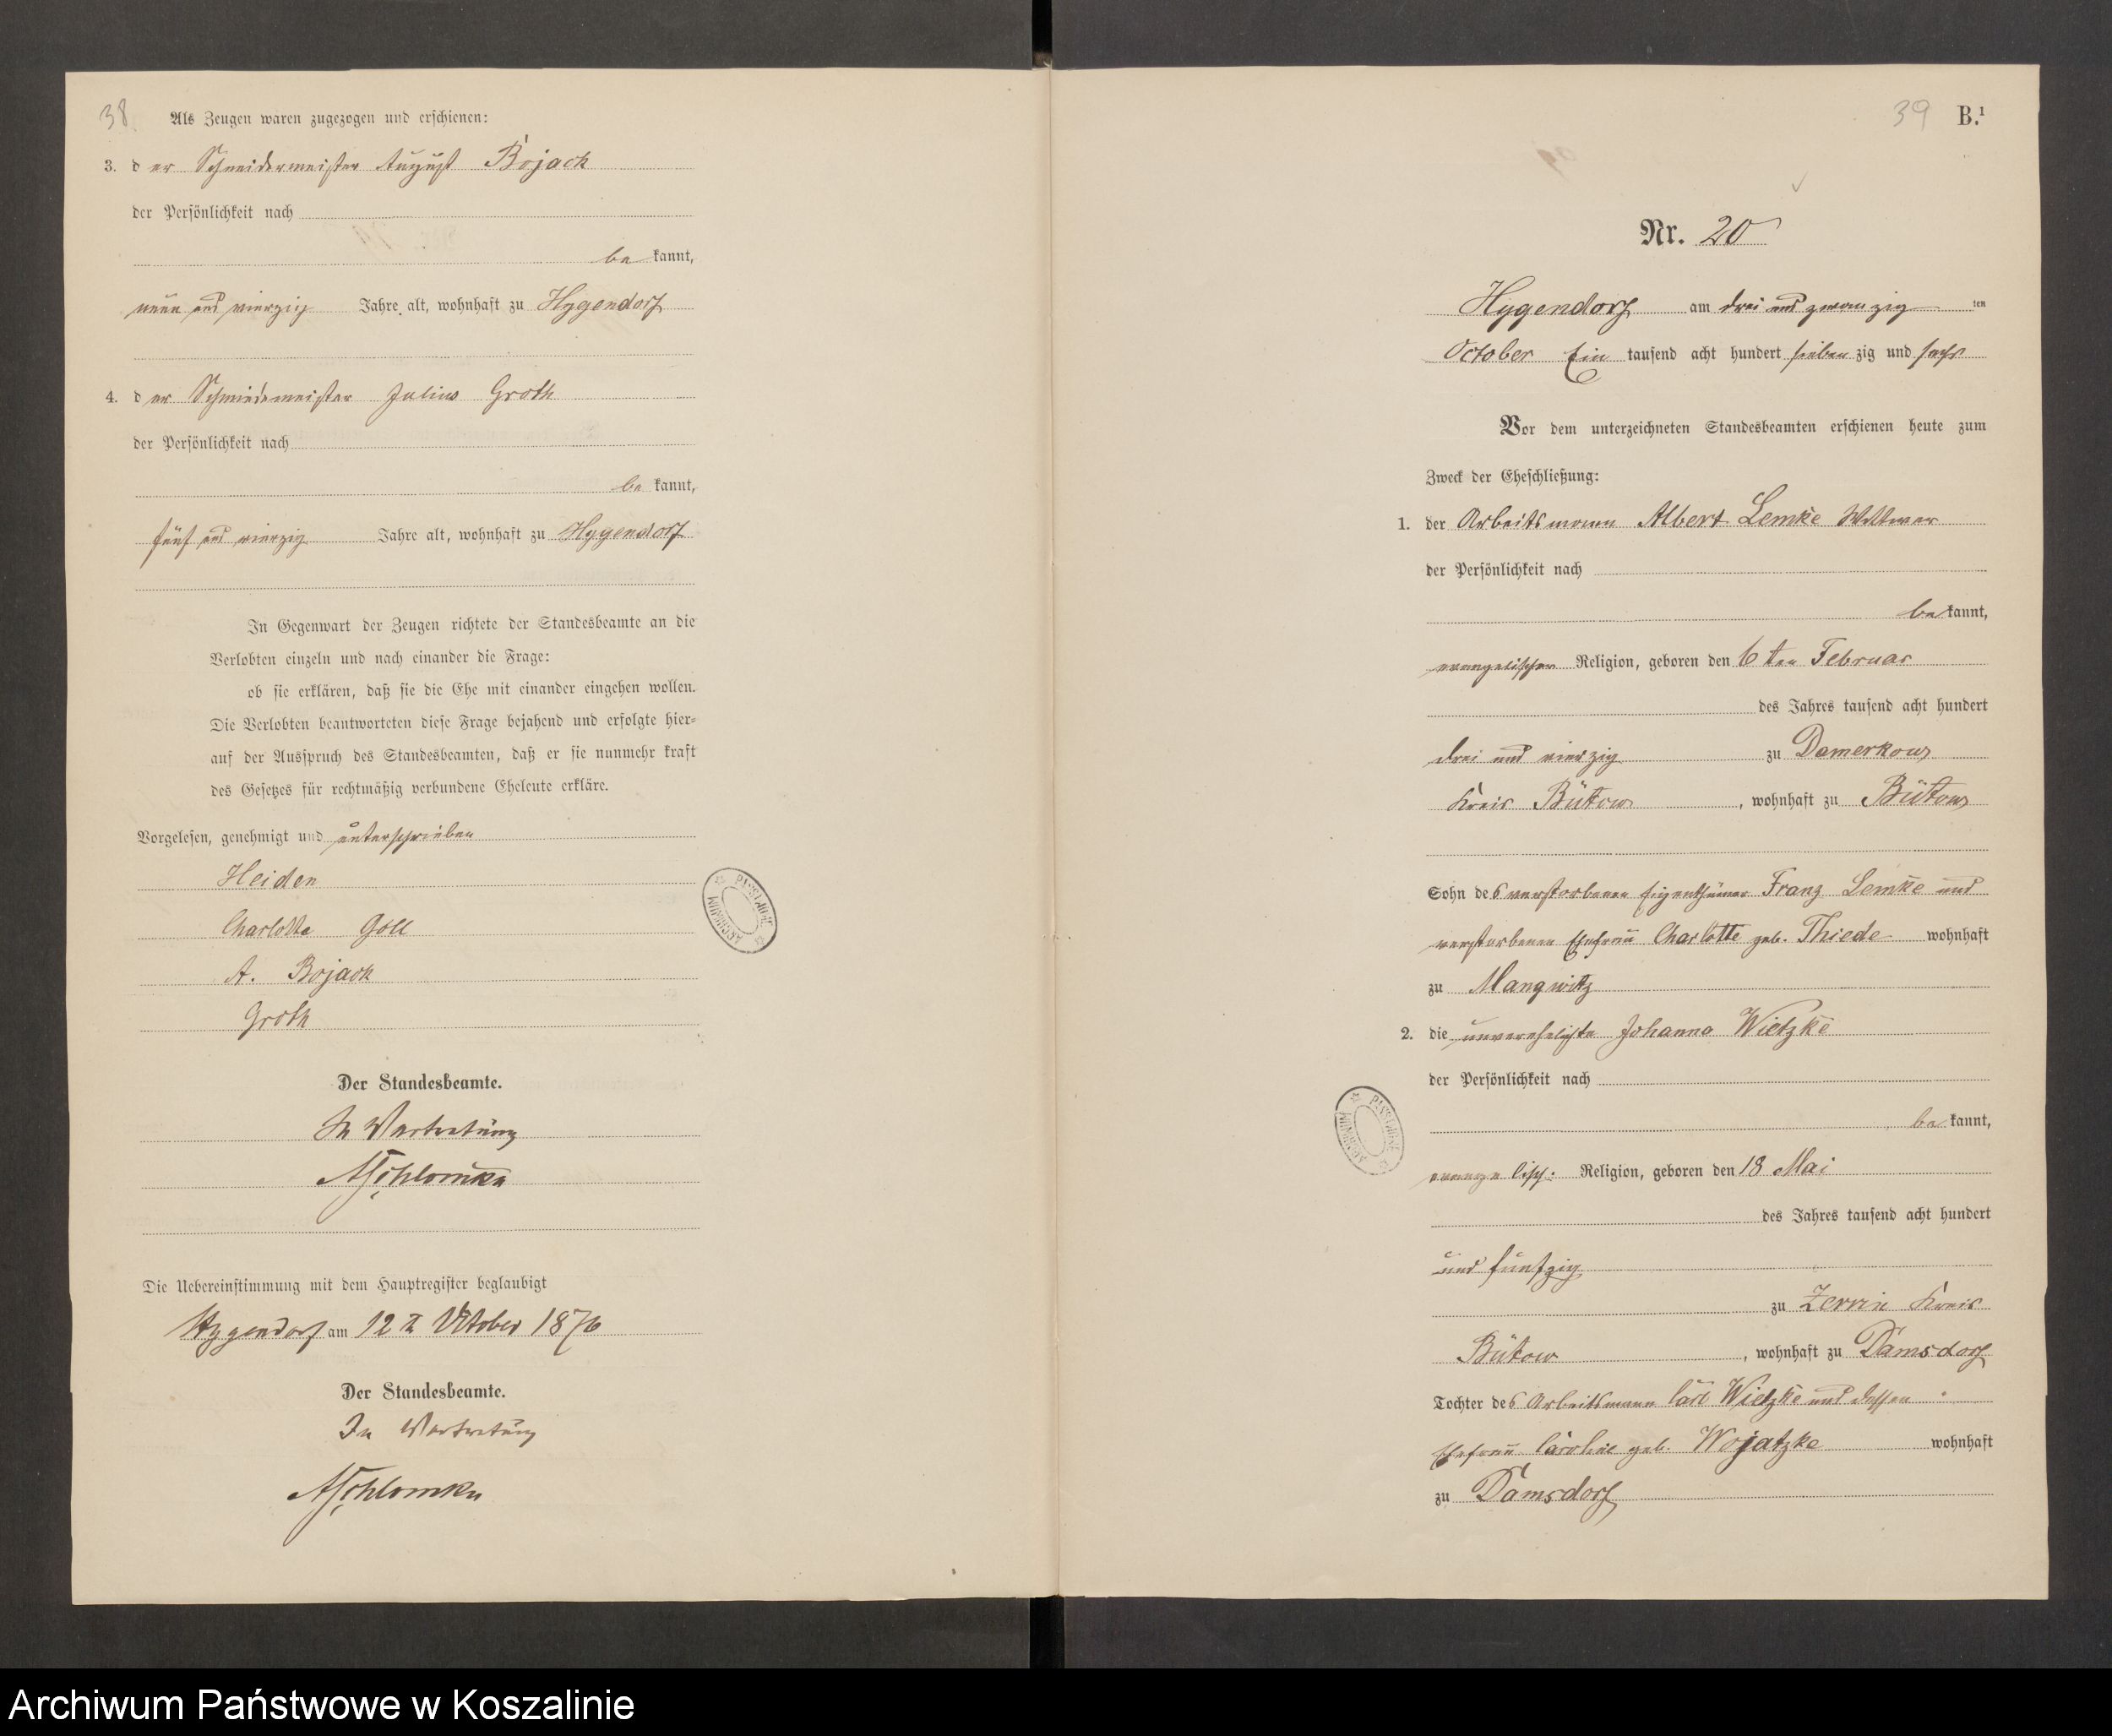 38.
Als Zeugen waren zugezogen und erschienen:
3. der Schneidermeister August Bojack
der Persönlichkeit nach
bekannt,
neun und vierzig Jahre alt, wohnhaft zu Hygendorf
4. der Schmiedemeister Julius Groth
der Persönlichkeit nach
bekannt,
fünf und vierzig Jahre alt, wohnhaft zu Hygendorf
In Gegenwart der Zeugen richtete der Standesbeamte an die
Verlobten einzeln und nach einander die Frage:
ob sie erklären, daß sie die Ehe mit einander eingehen wollen.
Die Verlobten beantworteten diese Frage bejahend und erfolgte hier-
auf der Ausspruch des Standesbeamten, daß er sie nunmehr kraft
des Gesetzes für rechtmäßig verbundene Eheleute erkläre.
Vorgelesen, genehmigt und unterschrieben
Heiden
Charlotte Goll
A. Bojack
Groth
Der Standesbeamte.
In Vertretung
Die Uebereinstimmung mit dem Hauptregister beglaubigt
Hygendorf am 12 October 1876
Der Standesbeamte.
In Vertretung
ARCHIWUM PAŃSTWOWE
39 B.1
Nr. 20
Hygendorf am drei und zwanzigten
October Ein tausend acht hundert siebenzig und sechs
Vor dem unterzeichneten Standesbeamten erschienen heute zum
Zweck der Eheschließung:
1. der Arbeitsmann Albert Lemke Wittwer
der Persönlichkeit nach
bekannt,
evangelischer Religion, geboren den 6ten Februar
des Jahres tausend acht hundert
drei und vierzig zu Damerkow
Kreis Bütow, wohnhaft zu Bütow
Sohn des verstorbenen Eigenthümer Franz Lemke und
verstorbenen Ehefrau Charlotte geb. Thiede wohnhaft
zu Mangwitz
2. die unverehelichte Johanna Wietzke
der Persönlichkeit nach
bekannt,
evangelisch: Religion, geboren den 18 Mai
des Jahres tausend acht hundert
und funfzig
zu Zerrin Kreis
Bütow, wohnhaft zu Damsdorf
Tochter des Arbeitsmann Carl Wietzke und dessen
Ehefrau Caroline geb. Wojatzke wohnhaft
zu Damsdorf
ARCHIWUM PAŃSTWOWE
Archiwum Państwowe w Koszalinie